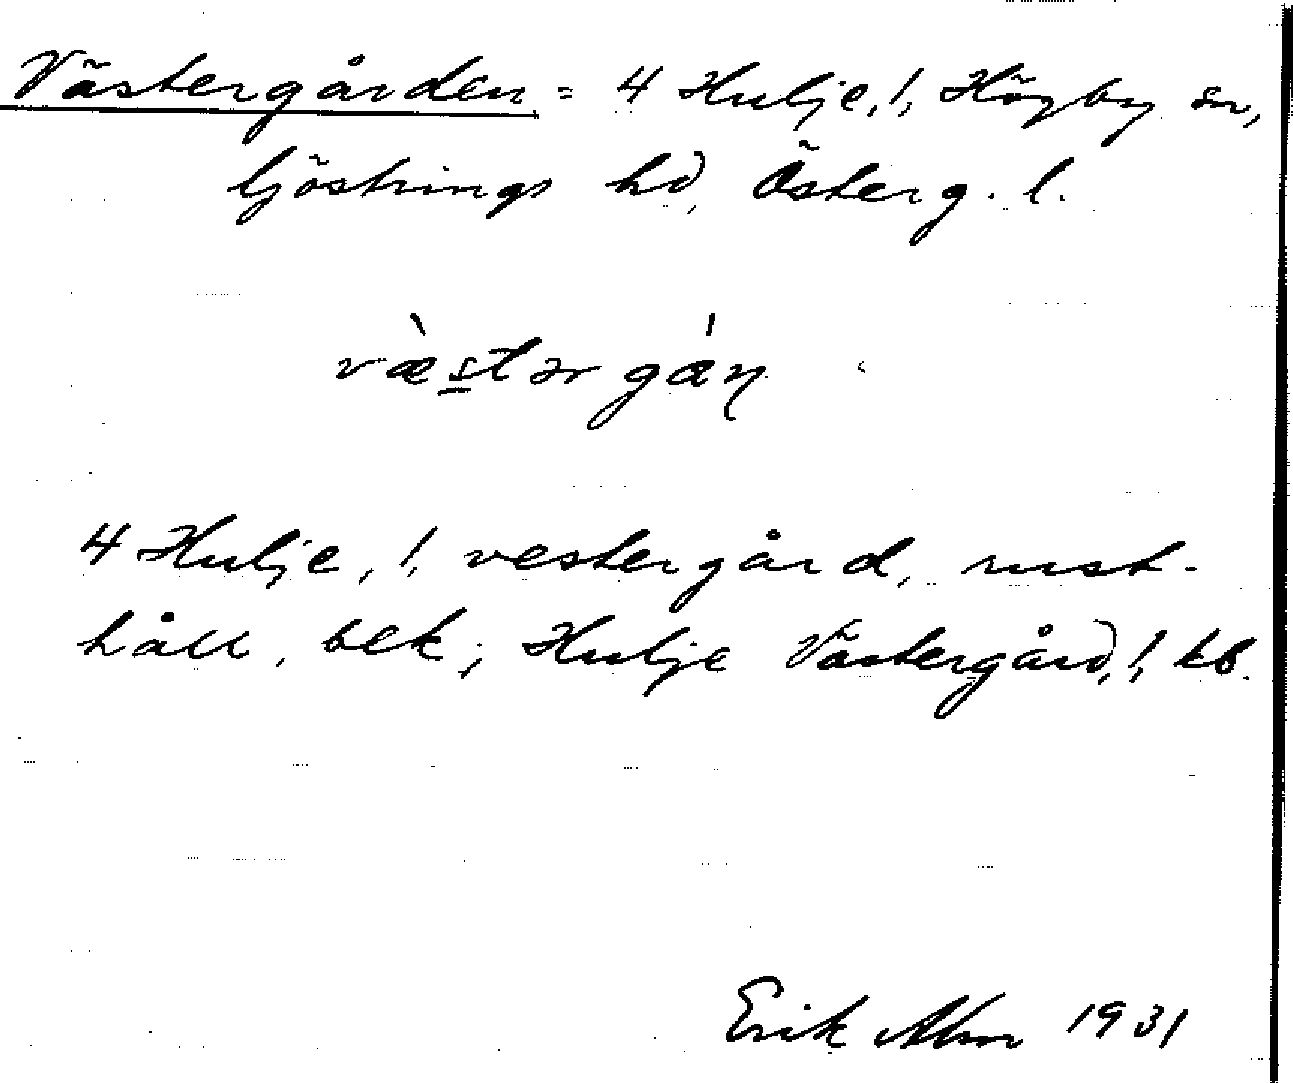 Västergården = 4 Hulje, !, Högby sn,
Göstrings hd, Österg. l.
væ̀stər gáɳ
4 Hulje, !, vestergård, rust-
håll, bek; Hulje Västergård, !, kb.
Erik Abm 1931